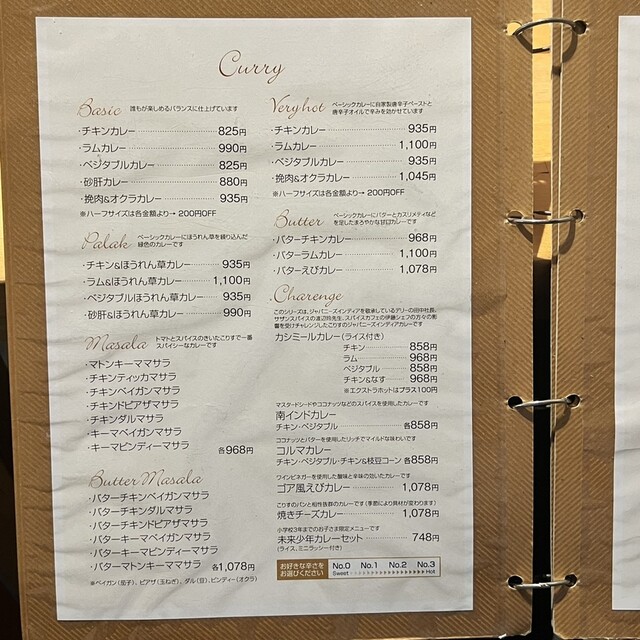 Curry
Basic
誰もが楽しめるバランスに仕上げています
・チキンカレー 825円
・ラムカレー 990円
・ベジタブルカレー 825円
・砂肝カレー 880円
・挽肉&オクラカレー 935円
※ハーフサイズは各金額より→ 200円OFF
Palak
ベーシックカレーにほうれん草を練り込んだ
緑色のカレーです
・チキン&ほうれん草カレー 935円
・ラム&ほうれん草カレー 1,100円
・ベジタブルほうれん草カレー 935円
・砂肝&ほうれん草カレー 990円
Masala
トマトとスパイスのきいたこりすで一番
スパイシーなカレーです
・マトンキーママサラ
・チキンティッカマサラ
・チキンベイガンマサラ
・チキンドピアザマサラ
・チキンダルマサラ
・キーマベイガンマサラ
・キーマビンディーマサラ 各968円
Butter Masala
・バターチキンベイガンマサラ
・バターチキンダルマサラ
・バターチキンドピアザマサラ
・バターキーマベイガンマサラ
・バターキーマビンディーマサラ
・バターマトンキーママサラ 各1,078円
※ベイガン(茄子)、ピアザ(玉ねぎ)、ダル(豆)、ビンディー(オクラ)
Very hot
ベーシックカレーに自家製唐辛子ペーストと
唐辛子オイルで辛みを効かせています
・チキンカレー 935円
・ラムカレー 1,100円
・ベジタブルカレー 935円
・挽肉&オクラカレー 1,045円
※ハーフサイズは各金額より→ 200円OFF
Butter
ベーシックカレーにバターとカスリメティなど
を足したまろやかな甘口カレーです
・バターチキンカレー 968円
・バターラムカレー 1,100円
・バターえびカレー 1,078円
Charenge
このシリーズは、ジャパニーズインディアを敬承しているデリーの田中社長、
サザンスパイスの渡辺玲先生、スパイスカフェの伊藤シェフの方々の影
響を受けチャレンジしたこりすのジャパニーズインディアカレーです
カシミールカレー(ライス付き)
チキン 858円
ラム 968円
ベジタブル 858円
チキン&なす 968円
※エクストラホットはプラス100円
マスタードシードやココナッツなどのスパイスを使用したカレーです
南インドカレー
チキン・ベジタブル 各858円
ココナッツとバターを使用したリッチでマイルドな味わいです
コルマカレー
チキン・ベジタブル・チキン&枝豆コーン 各858円
ワインビネガーを使用した酸味と辛味の効いたカレーです
ゴア風えびカレー 1,078円
こりすのパンと相性抜群のカレーです(季節により具材が変わります)
焼きチーズカレー 1,078円
小学校3年までのお子さま限定メニューです
未来少年カレーセット 748円
(ライス、ミニラッシー付き)
お好きな辛さを
お選びください
No.0 No.1 No.2 No.3
Sweet Hot